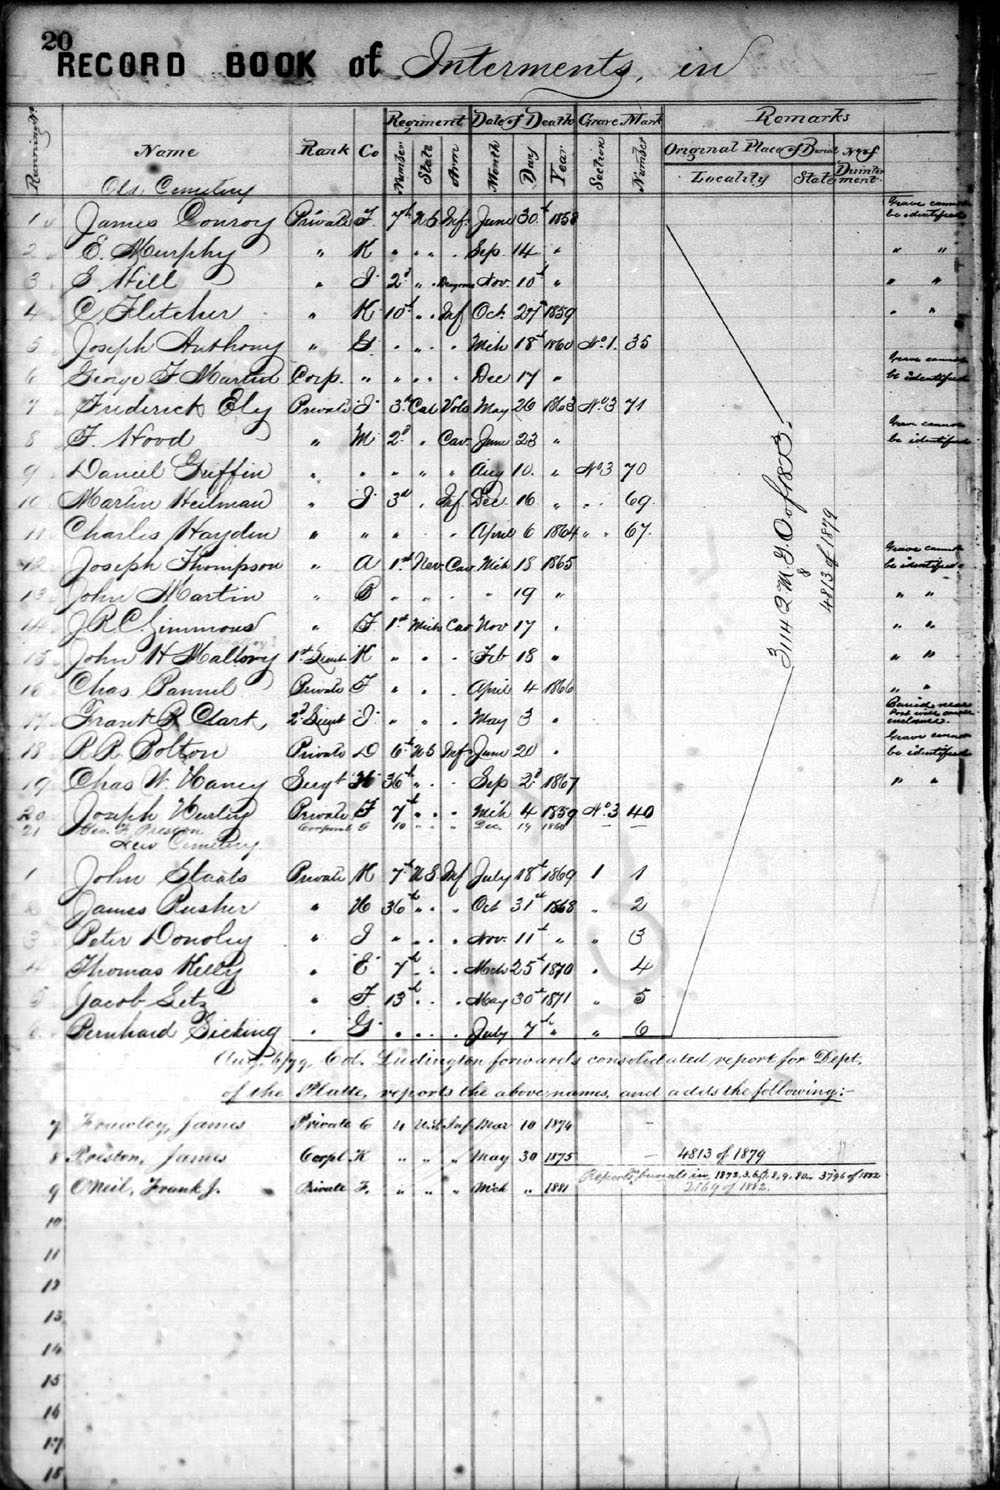 20
RECORD BOOK of Interments, in
Running No. Name Rank Co Regiment Date of Death Grave Mark Remarks
Number State Arm Month Day Year Section Number Original Place of Burial No of Disinterment
Locality State
Old Cemetery
1 James Conroy Private F. 7th U S Inf. June 30th 1858 Grave cannot be identified
2 E. Murphy " K " " " " Sep. 14 " " "
3 S Hill " I 2d " Dragoons Nov. 10th " " "
4 C Fletcher " K 10th " " Inf Oct. 27th 1859 " "
5 Joseph Anthony " G " " " " Mch 18th 1860 No. 1. 35
6 George F Martin Corp. " " " " " Dec 17 " Grave cannot be identified
7 Frederick Ely Private I 3d Cal Vols May 26 1863 No 3 71
8 F. Wood " M 2d " Cav. June 23 " Grave cannot be identified
9 Daniel Griffin " " " " " Aug 10. " No 3 70
10 Martin Heilman " I 3d " Inf Dec 16 " " " 69.
11 Charles Hayden " " " " " April 6 1864 " " 67.
12 Joseph Thompson " A 1st Nev Cav Mch 18 1865 Grave cannot be identified
13 John Martin " B " " " " 19 " " "
14 J.R.C. Simmons " F 1st Mich Cav Nov 17 " " "
15 John H Mallory 1st Lieut K " " " Feb 18 " " "
16 Chas Pannel Private F " " " April 4 1866 " "
17 Frank R Clark 2d Lieut I " " " May 3 " Buried near Post
18 R R Bolton Private D 6th U S Inf June 20 " Grave cannot be identified
19 Chas W. Haney Sergt H 36th " " " Sep 2d 1867 " "
20 Joseph Hurley Private F 7th " " " Mch 4 1859 No 3 40
21 Geo. F. Preston Corporal G 10 " " " Dec. 19 1860
New Cemetery
1 John Staats Private K 7th U S. Inf July 18th 1869 1 1
2 James Rusher " H 36th " " " Oct 31st 1868 " 2
3 Peter Donoley " I " " " " Nov. 11th " " 3
4 Thomas Kelly " E 7th " " " Mch 25th 1870 " 4
5 Jacob Setz " F 13th " " " May 30th 1871 " 5
6 Bernhard Sicking " G " " " " July 7th " " 6
3114 Q.M.G.O of 1873.
&
4813 of 1879
Aug. 6/79, Col. Ludington forwards consolidated report for Dept.
of the Platte, reports the above names, and adds the following:-
7 Frawley, James Private C 4 U.S. Inf. Mar 10 1874 –
8 Preston, James Corpl. K " " " May 30 1875 – 4813 of 1879
9 O'Neil, Frank J. Private F. " " " Mch " 1881
2169 of 1882.
10
11
12
13
14
15
16
17
18